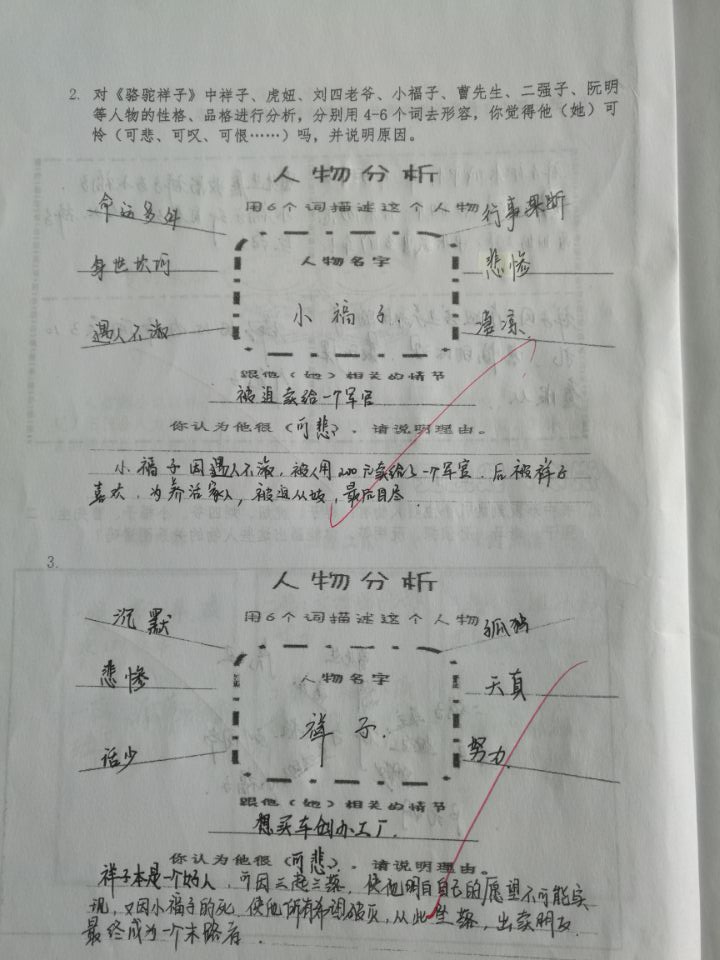 2. 对《骆驼祥子》中祥子、虎妞、刘四老爷、小福子、曹先生、二强子、阮明
等人物的性格、品格进行分析，分别用 4-6 个词去形容，你觉得他（她）可
怜（可悲、可叹、可恨……）吗，并说明原因。
人物分析
用6个词描述这个人物
命运多舛
行事果断
人物名字
身世坎坷
悲惨
小福子.
遇人不淑
凄凉.
跟他（她）相关的情节
被迫卖给一个军官
你认为他很（可悲），请说明理由。
小福子因遇人不淑，被人用200元卖给了一个军官，后被祥子
喜欢，为养活家人，被迫从妓，最后自尽.
3.
人物分析
用6个词描述这个人物
沉默
孤独
人物名字
悲惨
天真
祥子.
话少
努力
跟他（她）相关的情节
想买车创办工厂.
你认为他很（可悲），请说明理由。
祥子本是一个好人，可因三起三落，使他明白自己的愿望不可能实
现，又因小福子的死，使他所有希望破灭，从此坠落，出卖朋友.
最终成为一个末路者.